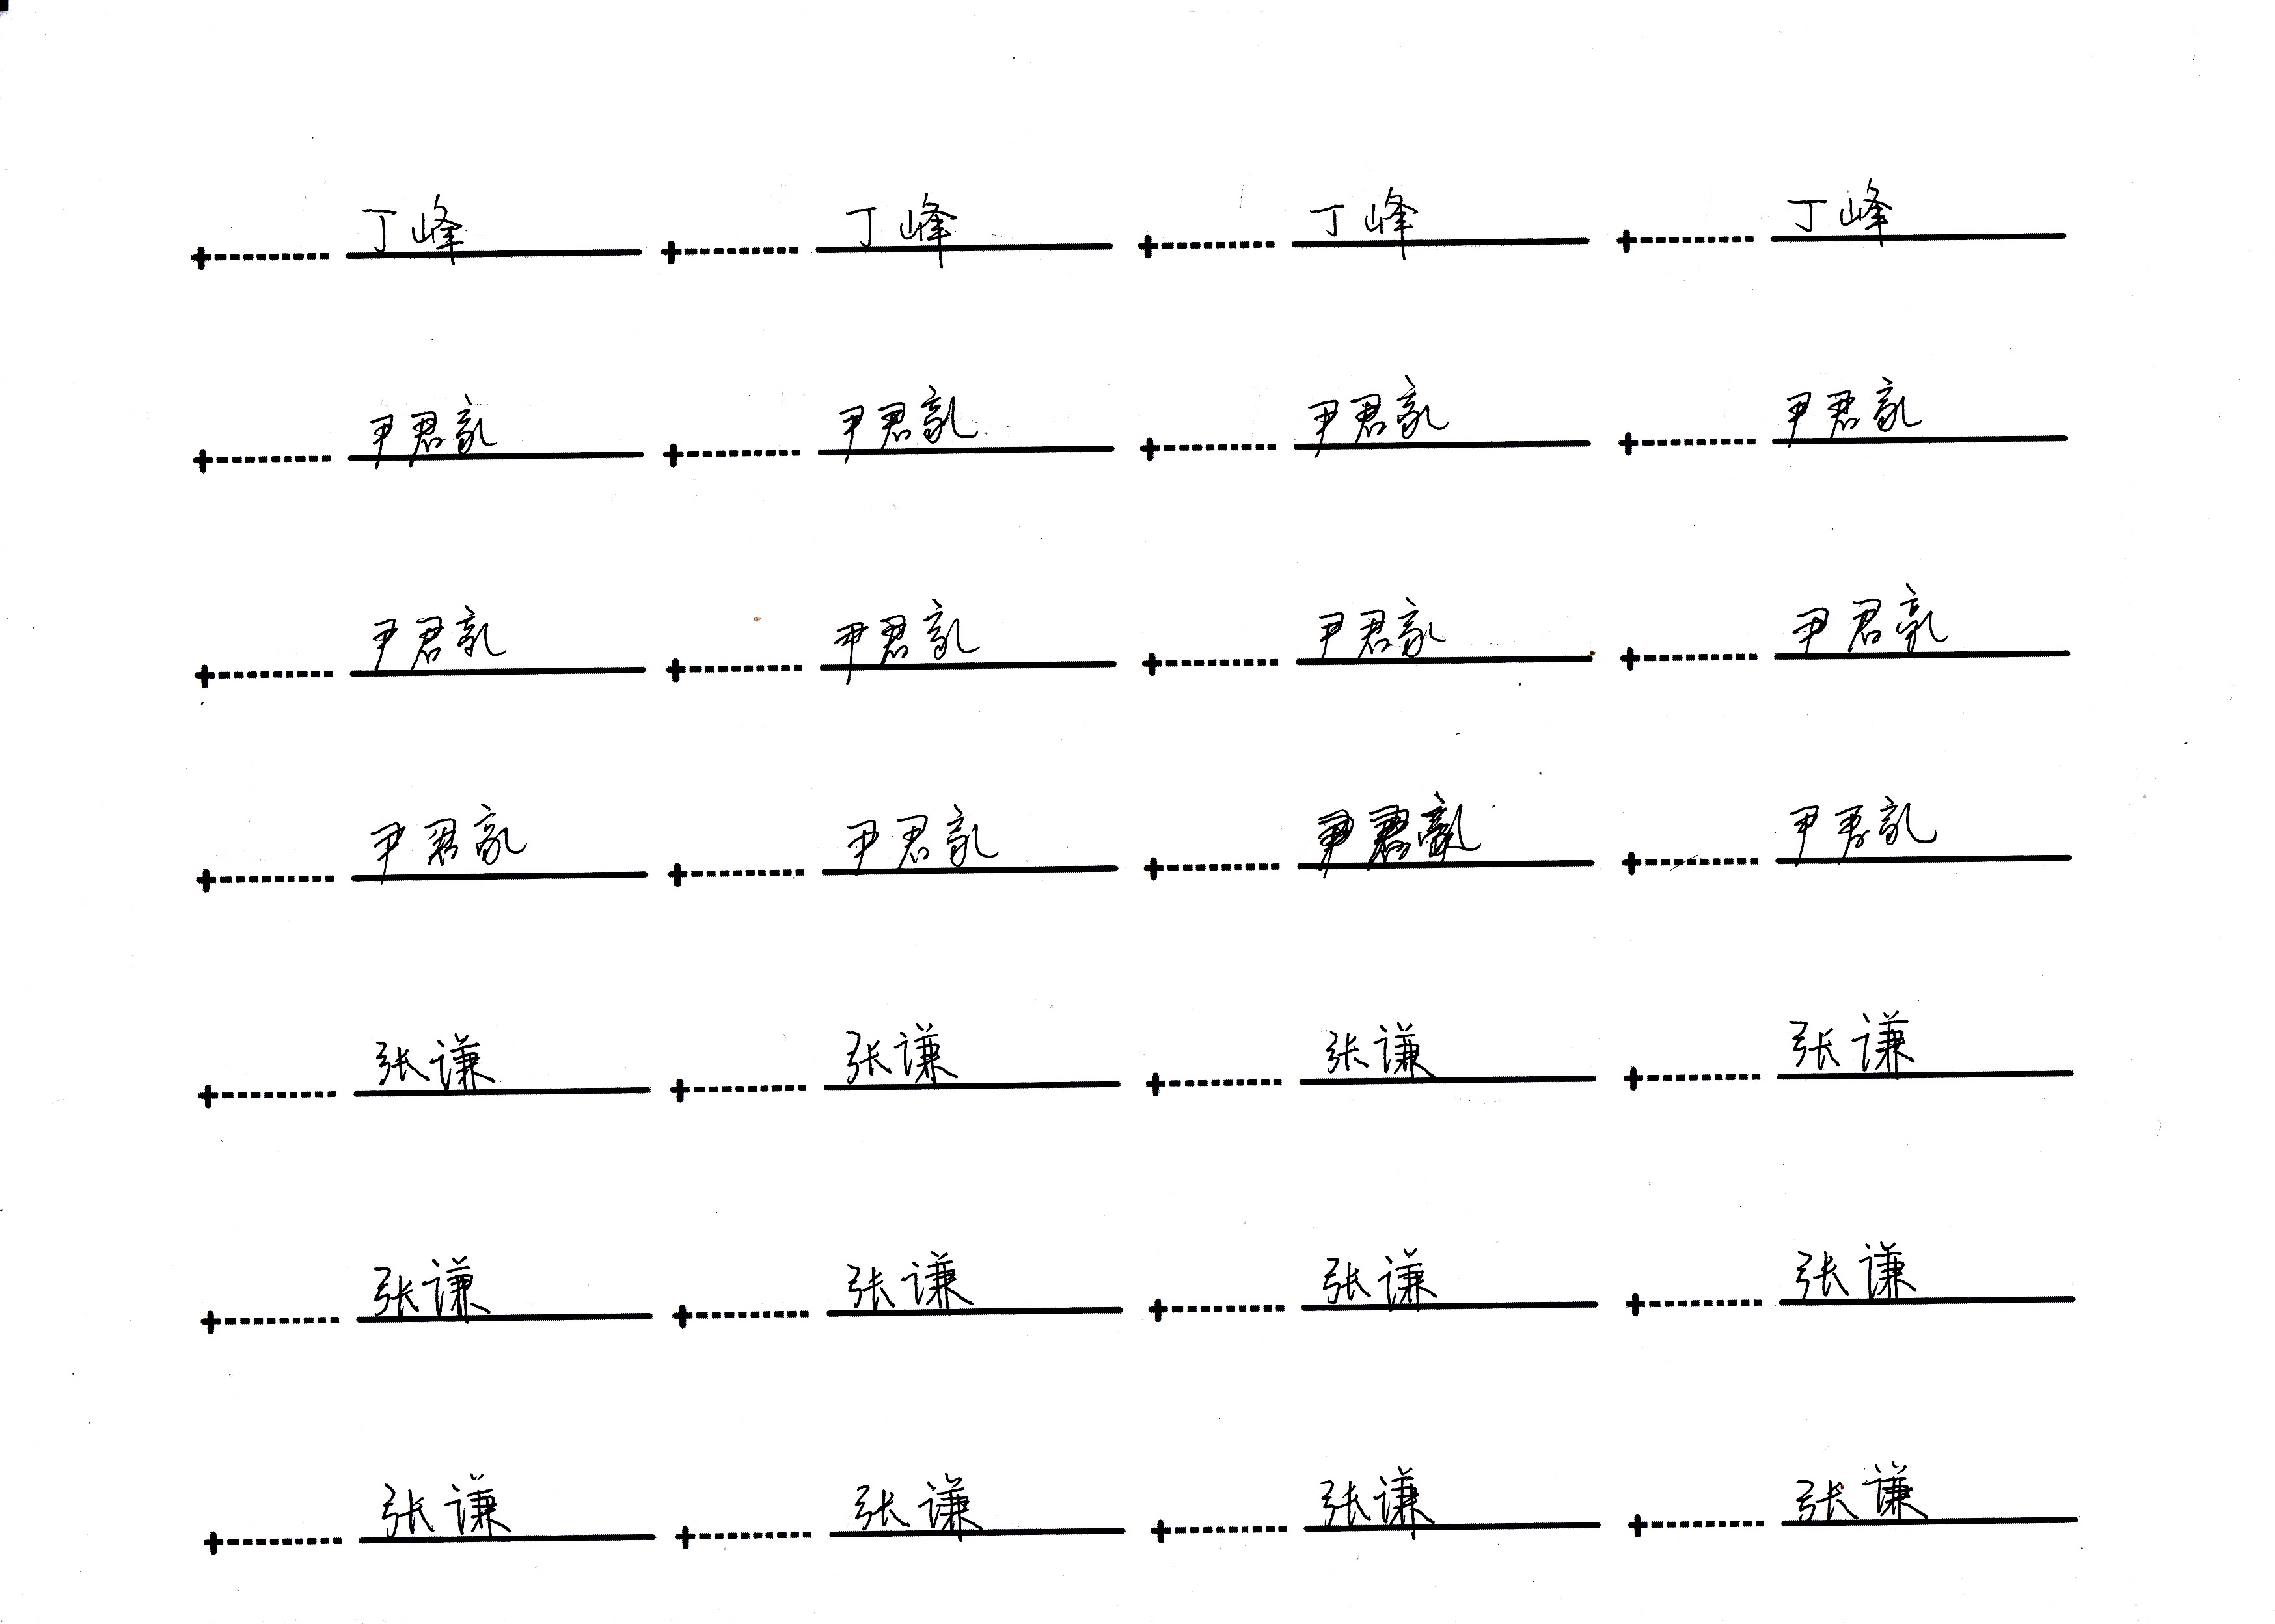 丁峰 丁峰 丁峰 丁峰
尹君豪 尹君豪 尹君豪 尹君豪
尹君豪 尹君豪 尹君豪 尹君豪
尹君豪 尹君豪 尹君豪 尹君豪
张谦 张谦 张谦 张谦
张谦 张谦 张谦 张谦
张谦 张谦 张谦 张谦